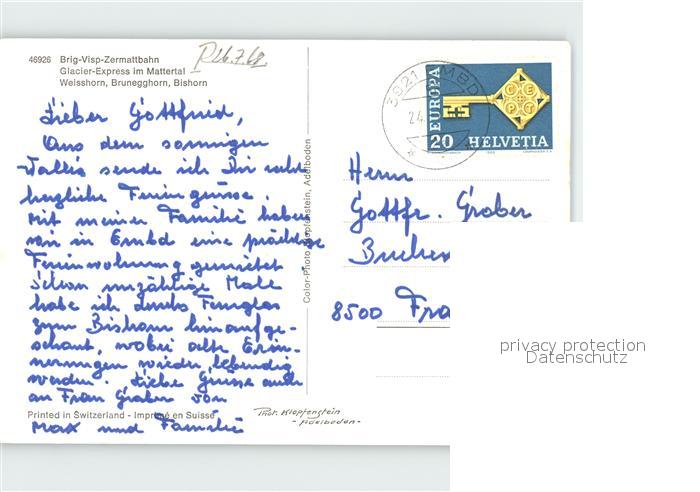 46926 Brig-Visp-Zermattbahn
Glacier-Express im Mattertal
Weisshorn, Brunegghorn, Bishorn
R 26.7.68.
Lieber Gottfried,
Aus dem sonnigen
Wallis sende ich Dir recht
herzliche Feriengrüsse.
Mit meiner Familie haben
wir in Embd eine prächtige
Ferienwohnung gemietet.
Schon unzählige Male
habe ich durchs Fernglas
zum Bishorn hinaufge-
schaut, wobei alte Erin-
nerungen wieder lebendig
werden. Liebe Grüsse auch
an Frau Graber von
Max und Familie
Printed in Switzerland - Imprimé en Suisse
Color-Photo Klopfenstein, Adelboden
Phot. Klopfenstein
- Adelboden -
3921 EMBD
24.
EUROPA
CEPT
20 HELVETIA
Herrn
Gottfr. Graber
Buchen
8500 Fra
privacy protection
Datenschutz